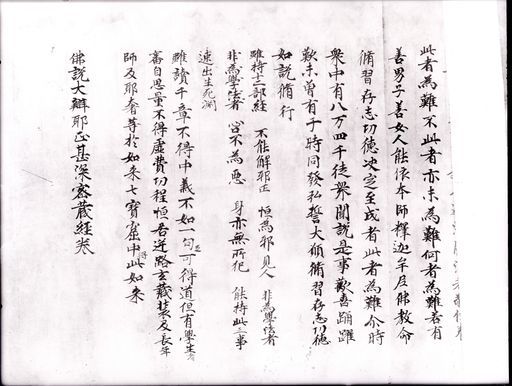 此者為難不此者亦未為難何者為難若有
善男子善女人能依本師釋迦牟尼佛教命
脩習存志功徳决定至成者此者為難尒時
衆中有八万四千徒衆聞說是事歡喜踊躍
歎未曽有于時同發私誓大願脩習存志功徳
如說脩行
雖持十二部經 不能解邪正 恒為邪見人 非為學法者
非為學法者 口不為惡 身亦無所犯 能持此三事
速出生死淵
雖讀千章不得中義不如一句可得道但有學生
審自思量不得虛費功程恒君迷路玄藏裝及長年
師及耶奢等於如来七寶窟中得此如来
佛說大辯邪正甚深密藏經一卷